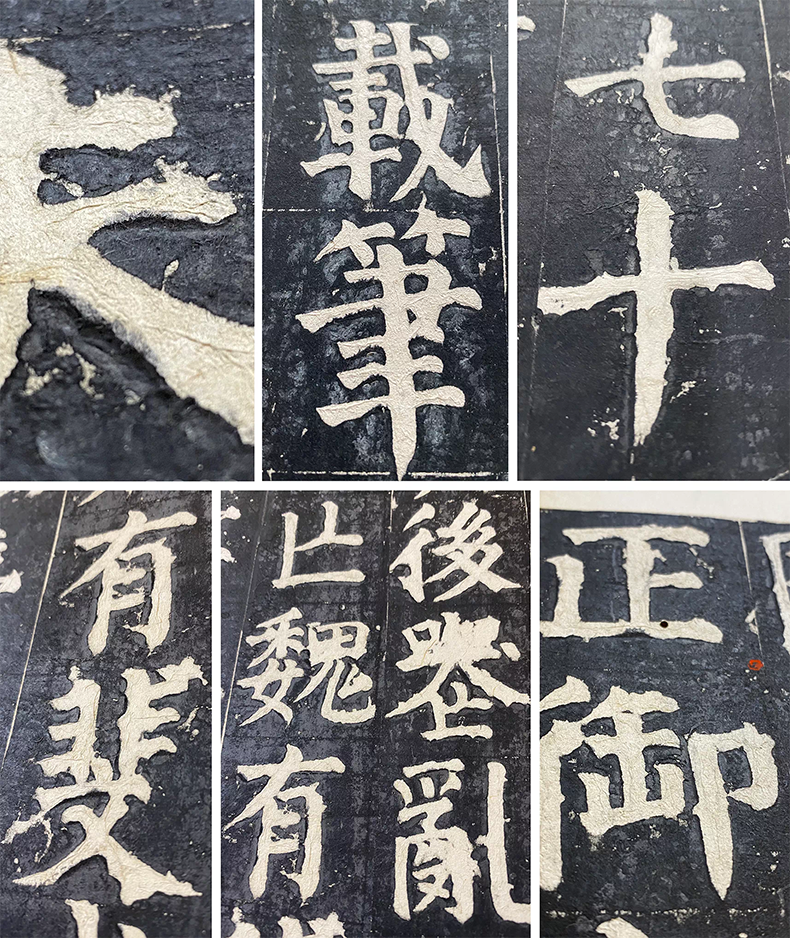 載筆
七十
有斐
後喪亂
亡魏有
正御